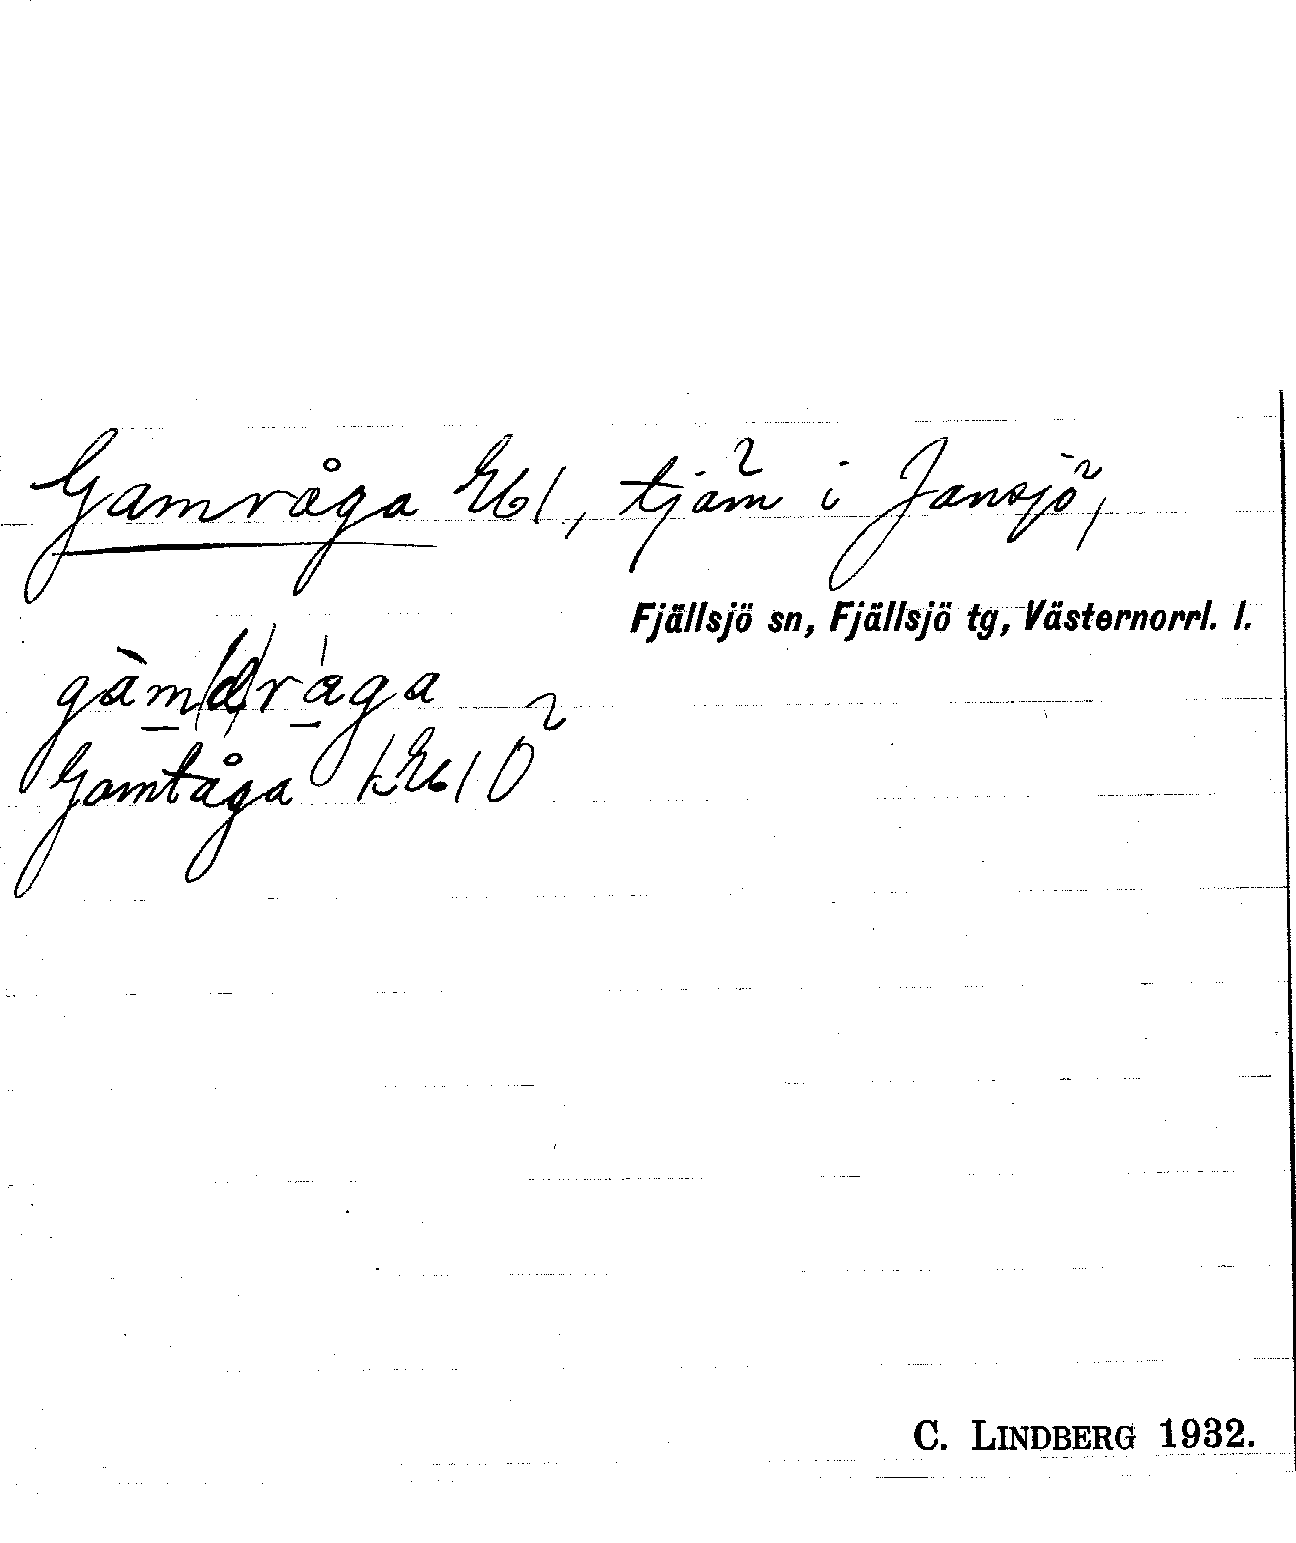 Gamråga Eb1, tjärn i Jansjö,
Fjällsjö sn, Fjällsjö tg, Västernorrl. l.
gàm(d)råga
Gamtåga
C. LINDBERG 1932.